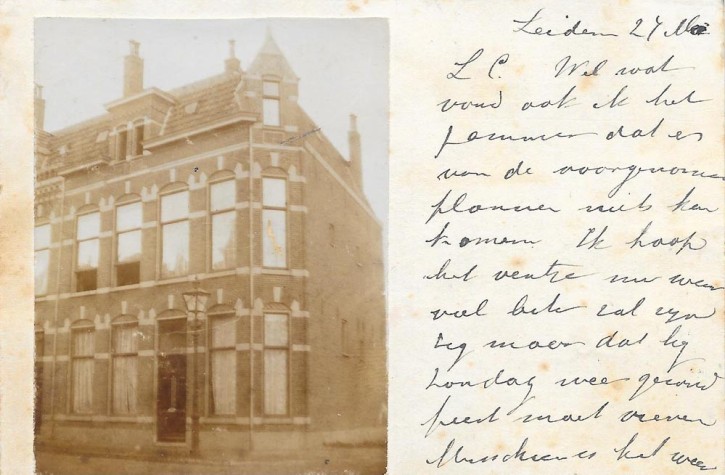 Leiden 27 Mei
L C. Wel wat
vond ook ik het
jammer dat er
van de voorgenomen
plannen niets kon
komen Ik hoop
het ventje nu weer
veel beter zal zijn
zeg maar dat hij
zondag weer gezond
feest moet vieren
Misschien is het weer